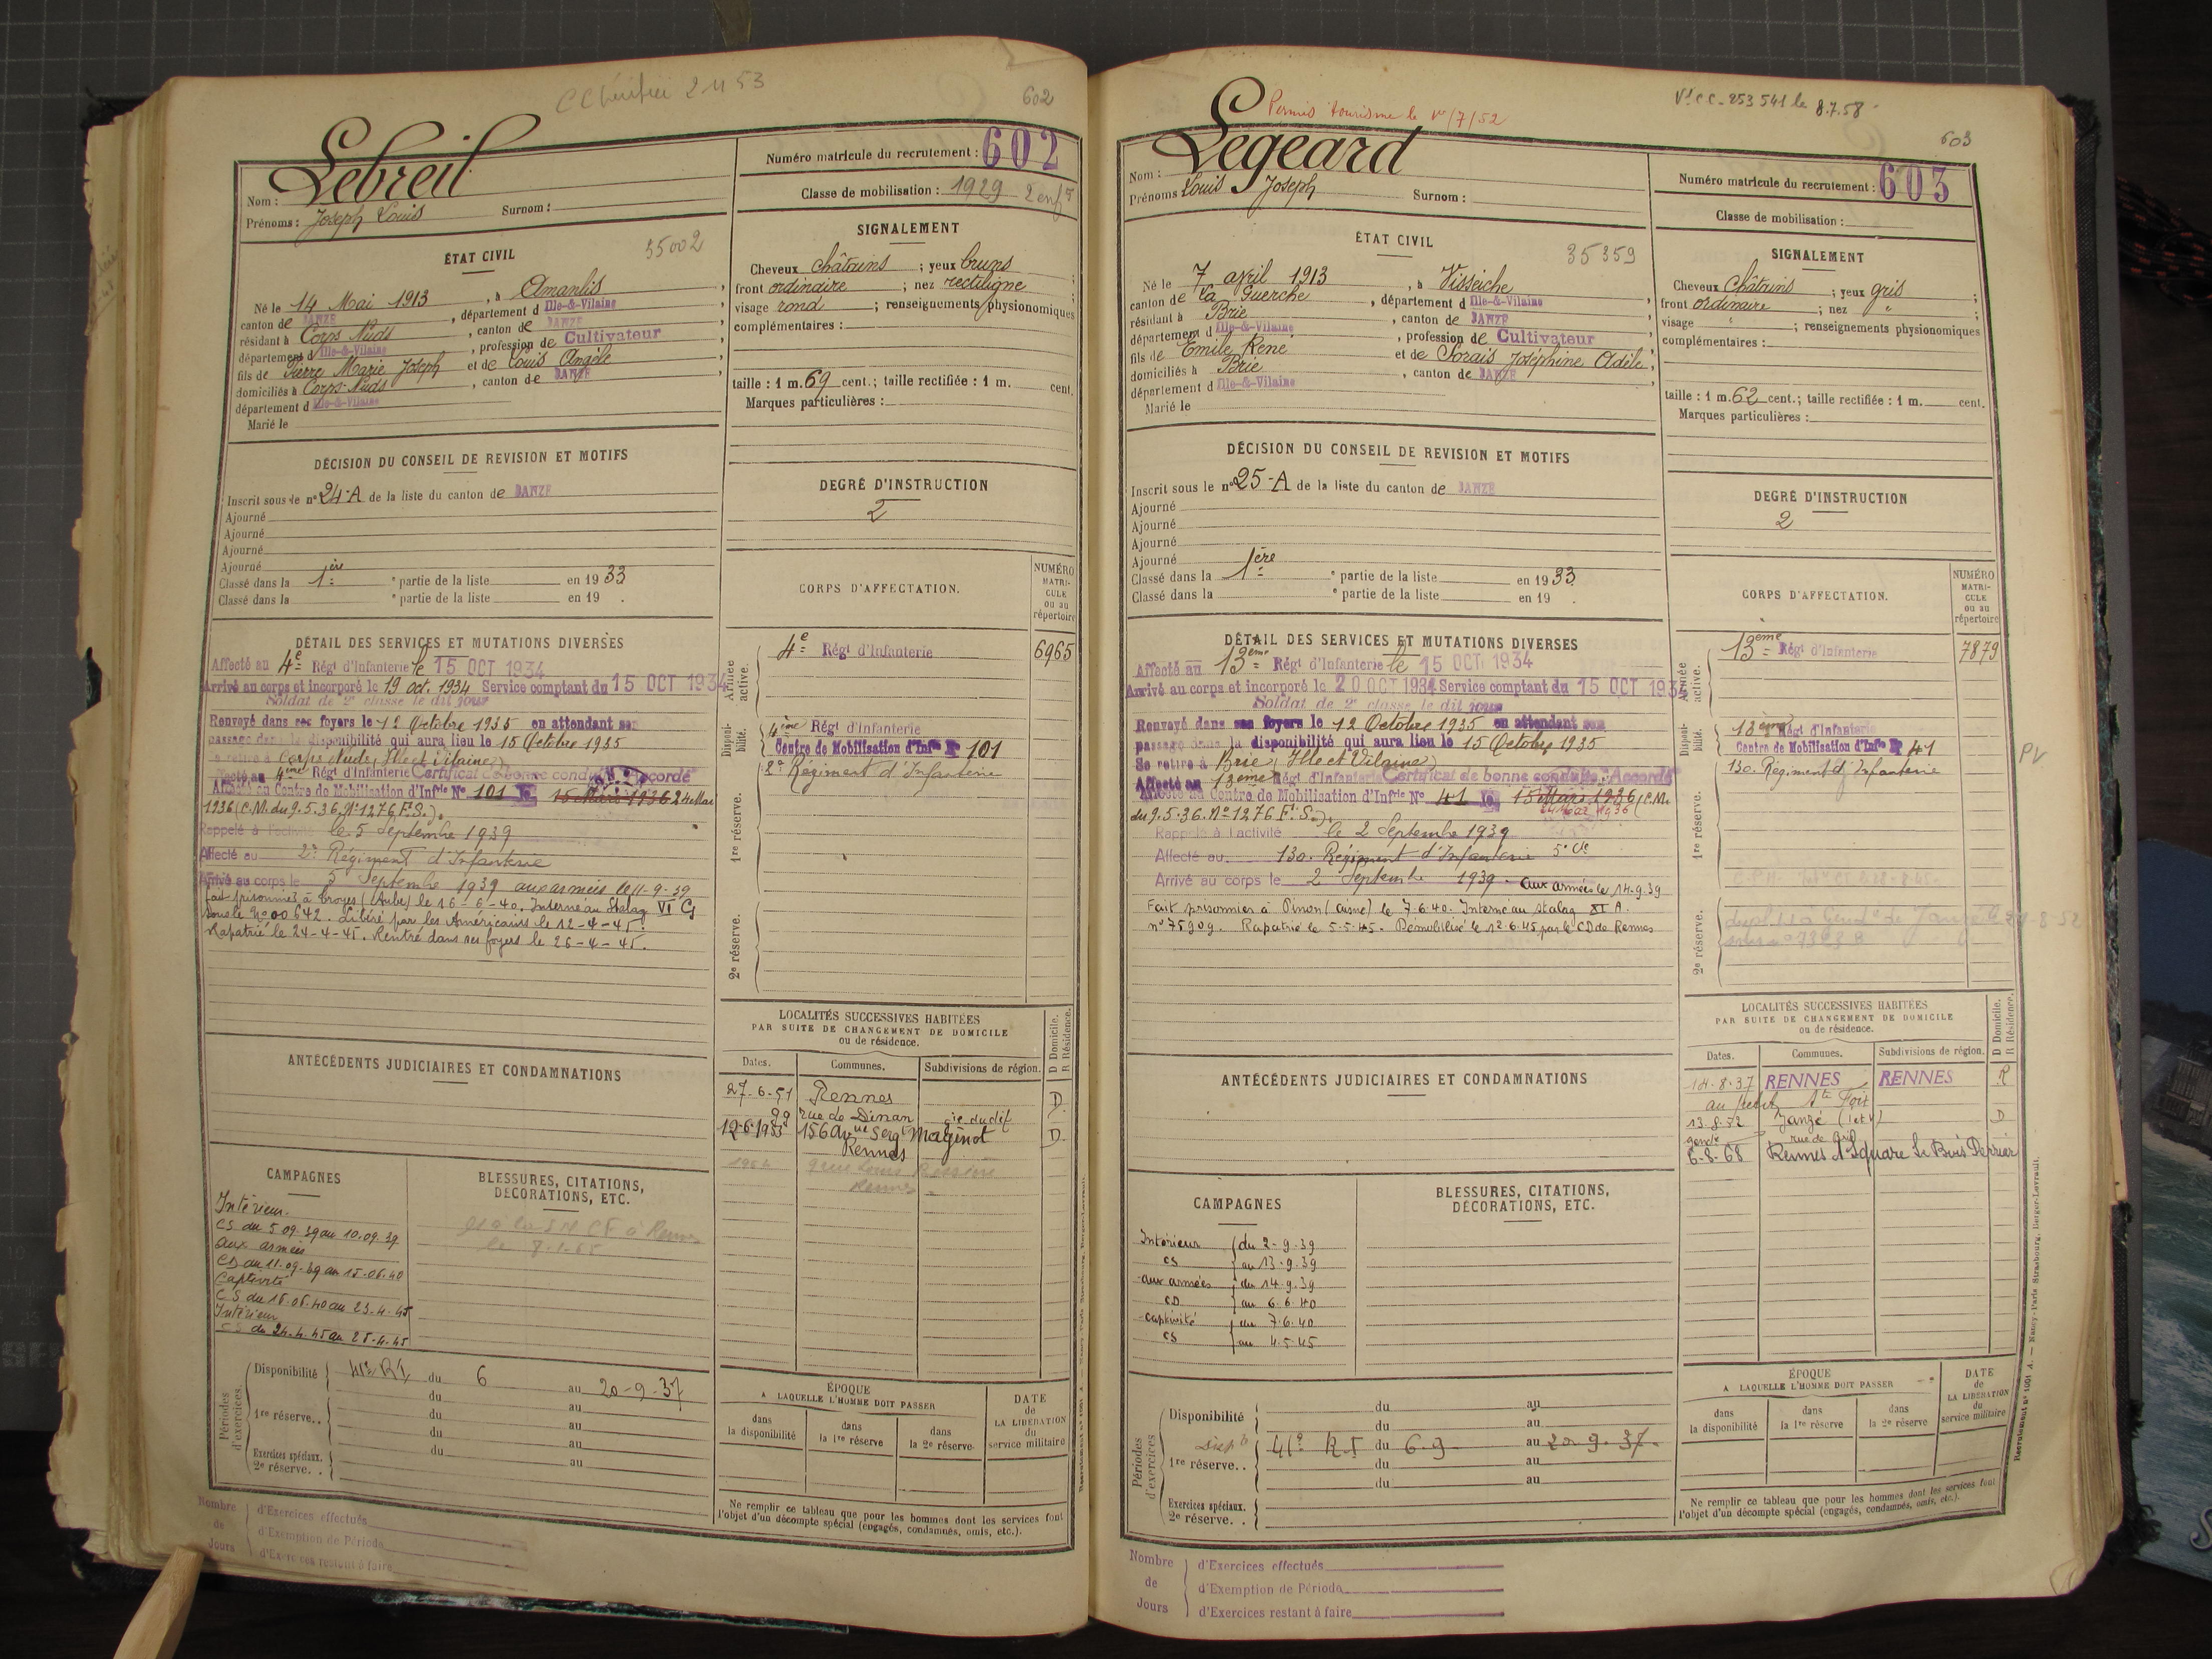 CC Vérifiée 2 11 53
602
Nom : Lebreil
Prénoms : Joseph Louis Surnom :
Numéro matricule du recrutement : 602
Classe de mobilisation : 1929 2 enfts
ÉTAT CIVIL
35002
Né le 14 Mai 1913, à Amanlis,
canton de JANZÉ, département d Ille-&-Vilaine,
résidant à Corps Nuds, canton de JANZÉ,
département d Ille-&-Vilaine, profession de Cultivateur
fils de Pierre Marie Joseph et de Louis Angèle,
domiciliés à Corps-Nuds, canton de JANZÉ,
département d Ille-&-Vilaine
Marié le
SIGNALEMENT
Cheveux châtains ; yeux bruns ;
front ordinaire ; nez rectiligne ;
visage rond ; renseignements physionomiques
complémentaires :
taille : 1 m. 69 cent.; taille rectifiée : 1 m. cent.
Marques particulières :
DÉCISION DU CONSEIL DE REVISION ET MOTIFS
Inscrit sous le n° 24-A de la liste du canton de JANZÉ
Ajourné
Ajourné
Ajourné
Ajourné
Classé dans la 1ère ° partie de la liste en 1933
Classé dans la ° partie de la liste en 19 .
DEGRÉ D'INSTRUCTION
2
CORPS D'AFFECTATION.
NUMÉRO MATRI-CULE ou au répertoire
DÉTAIL DES SERVICES ET MUTATIONS DIVERSES
Affecté au 4e Régt d'Infanterie le 15 OCT 1934
Arrivé au corps et incorporé le 19 oct. 1934 Service comptant du 15 OCT 1934
Soldat de 2e classe le dit jour
Renvoyé dans ses foyers le 12 Octobre 1935 en attendant son
passage dans la disponibilité qui aura lieu le 15 Octobre 1935
se retire à Corps Nuds (Ille et Vilaine)
Affecté au 4ème Régt d'Infanterie Certificat de bonne conduite "Accordé"
Affecté au Centre de Mobilisation d'Infrie N° 101 le 15 Mars 1936 24 Mai
1936 (C.M. du 9.5.36. N° 1276 F.S.).
Rappelé à l'activité le 5 Septembre 1939
Affecté au 2e Régiment d'Infanterie
Arrivé au corps le 5 Septembre 1939 aux armées le 11-9-39
fait prisonnier à Troyes (Aube) le 16-6-40. Interné au Stalag VI G
sous le N° 00642. Libéré par les Américains le 12-4-45.
Rapatrié le 24-4-45. Rentré dans ses foyers le 26-4-45.
Armée active.
4e Régt d'Infanterie 6965
Disponibilité.
4ème Régt d'Infanterie
Centre de Mobilisation d'Infie N° 101
2e Régiment d'Infanterie
1re réserve.
2e réserve.
LOCALITÉS SUCCESSIVES HABITÉES
PAR SUITE DE CHANGEMENT DE DOMICILE
ou de résidence.
D Domicile. R Résidence.
Dates. Communes. Subdivisions de région.
27-6-51 Rennes D.
99 rue de Dinan
12-6-1953 156 Avnue Sergt Maginot D.
Rennes
Rennes
ANTÉCÉDENTS JUDICIAIRES ET CONDAMNATIONS
CAMPAGNES
Intérieur.
CS du 5.09.39 au 10.09.39
aux armées
CD du 11.09.39 au 15.06.40
Captivité
CS du 16.06.40 au 23.4.45
Intérieur
CS du 24.4.45 au 25.4.45
BLESSURES, CITATIONS,
DÉCORATIONS, ETC.
est à la SNCF à Rennes
Périodes d'exercices.
Disponibilité 41e RI du 6 au 20-9-37
du au
1re réserve.. du au
du au
Exercices spéciaux. du au
2e réserve. .
ÉPOQUE
A LAQUELLE L'HOMME DOIT PASSER
dans la disponibilité
dans la 1re réserve
dans la 2e réserve
DATE de LA LIBÉRATION du service militaire
Ne remplir ce tableau que pour les hommes dont les services font
l'objet d'un décompte spécial (engagés, condamnés, omis, etc.).
Nombre de Jours
d'Exercices effectués
d'Exemption de Période
d'Exercices restant à faire
Permis tourisme le 1er/7/52
Vt CC-253541 le 8.7.58
603
Nom : Legeard
Prénoms : Louis Joseph Surnom :
Numéro matricule du recrutement : 603
Classe de mobilisation :
ÉTAT CIVIL
35359
Né le 7 avril 1913, à Visseiche,
canton de La Guerche, département d Ille-&-Vilaine,
résidant à Brie, canton de JANZÉ,
département d Ille-&-Vilaine, profession de Cultivateur
fils de Emile René et de Sorais Joséphine Odèle,
domiciliés à Brie, canton de JANZÉ,
département d Ille-&-Vilaine
Marié le
SIGNALEMENT
Cheveux châtains ; yeux gris ;
front ordinaire ; nez " ;
visage " ; renseignements physionomiques
complémentaires :
taille : 1 m. 62 cent.; taille rectifiée : 1 m. cent.
Marques particulières :
DÉCISION DU CONSEIL DE REVISION ET MOTIFS
Inscrit sous le n° 25-A de la liste du canton de JANZÉ
Ajourné
Ajourné
Ajourné
Ajourné
Classé dans la 1ère ° partie de la liste en 1933.
Classé dans la ° partie de la liste en 19 .
DEGRÉ D'INSTRUCTION
2
CORPS D'AFFECTATION.
NUMÉRO MATRI-CULE ou au répertoire
DÉTAIL DES SERVICES ET MUTATIONS DIVERSES
Affecté au 13ème Régt d'Infanterie le 15 OCT 1934
Arrivé au corps et incorporé le 20 OCT 1934 Service comptant du 15 OCT 1934
Soldat de 2e classe le dit jour
Renvoyé dans ses foyers le 12 Octobre 1935 en attendant son
passage dans la disponibilité qui aura lieu le 15 Octobre 1935
Se retire à Brie (Ille et Vilaine)
Affecté au 13ème Régt d'Infanterie Certificat de bonne conduite "Accordé"
Affecté au Centre de Mobilisation d'Infrie N° 41 le 15 Mars 1936 (C.M.
24 Mai 1936
du 9.5.36. N° 1276 F.S.).
Rappelé à l'activité le 2 Septembre 1939
Affecté au 130. Régiment d'Infanterie 5e Cie
Arrivé au corps le 2 Septembre 1939. aux armées le 14-9-39
Fait prisonnier à Pinon (Aisne) le 7.6.40. Interné au stalag XI A.
n° 75909. Rapatrié le 5-5-45. Démobilisé le 12.6.45 par le CD de Rennes
Armée active.
13ème Régt d'Infanterie 7879
Disponibilité.
13ème Régt d'Infanterie
Centre de Mobilisation d'Infie N° 41
PV
130. Régiment d'Infanterie
1re réserve.
2e réserve.
LOCALITÉS SUCCESSIVES HABITÉES
PAR SUITE DE CHANGEMENT DE DOMICILE
ou de résidence.
D Domicile. R Résidence.
Dates. Communes. Subdivisions de région.
14-8-37 RENNES RENNES R
au petit Ste Foix
13.8.52 Janzé (I et V) D
6-8-68 Rennes 1 Square Le Bois Perrier
ANTÉCÉDENTS JUDICIAIRES ET CONDAMNATIONS
CAMPAGNES
Intérieur du 2-9-39
CS au 13-9-39
aux armées du 14.9.39
CD au 6.6.40
captivité du 7.6.40
CS au 4.5.45
BLESSURES, CITATIONS,
DÉCORATIONS, ETC.
Périodes d'exercices
Disponibilité du au
du au
Dispté 41e RI du 6.9 au 20-9-37.
1re réserve.. du au
du au
Exercices spéciaux.
2e réserve. .
ÉPOQUE
A LAQUELLE L'HOMME DOIT PASSER
dans la disponibilité
dans la 1re réserve
dans la 2e réserve
DATE de LA LIBÉRATION du service militaire
Ne remplir ce tableau que pour les hommes dont les services font
l'objet d'un décompte spécial (engagés, condamnés, omis, etc.).
Recrutement N° 1001 A. — Nancy-Paris-Strasbourg, Berger-Levrault.
Nombre de Jours
d'Exercices effectués
d'Exemption de Période
d'Exercices restant à faire